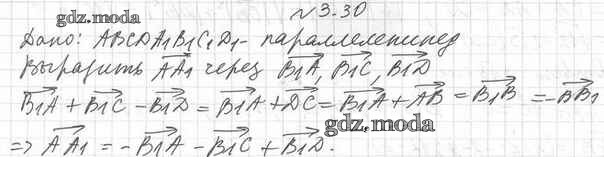 gdz.moda
№3.30
Дано: ABCDA₁B₁C₁D₁ - параллелепипед
Выразить AA₁ через B₁A, B₁C, B₁D
B₁A + B₁C - B₁D = B₁A + DC = B₁A + AB = B₁B = -BB₁
gdz.moda
=> AA₁ = -B₁A - B₁C + B₁D.